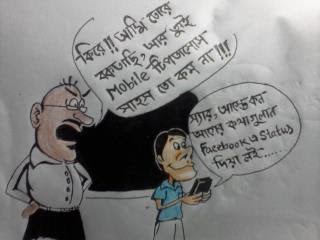 কিরে!! আমি তোরে
বকতাছি, আর তুই
Mobile টিপতাছোস
সাহস তো কম না!!!
স্যার, আস্তে কন
আপনের কথাগুলান
Facebook এ Status
দিয়া লই.....